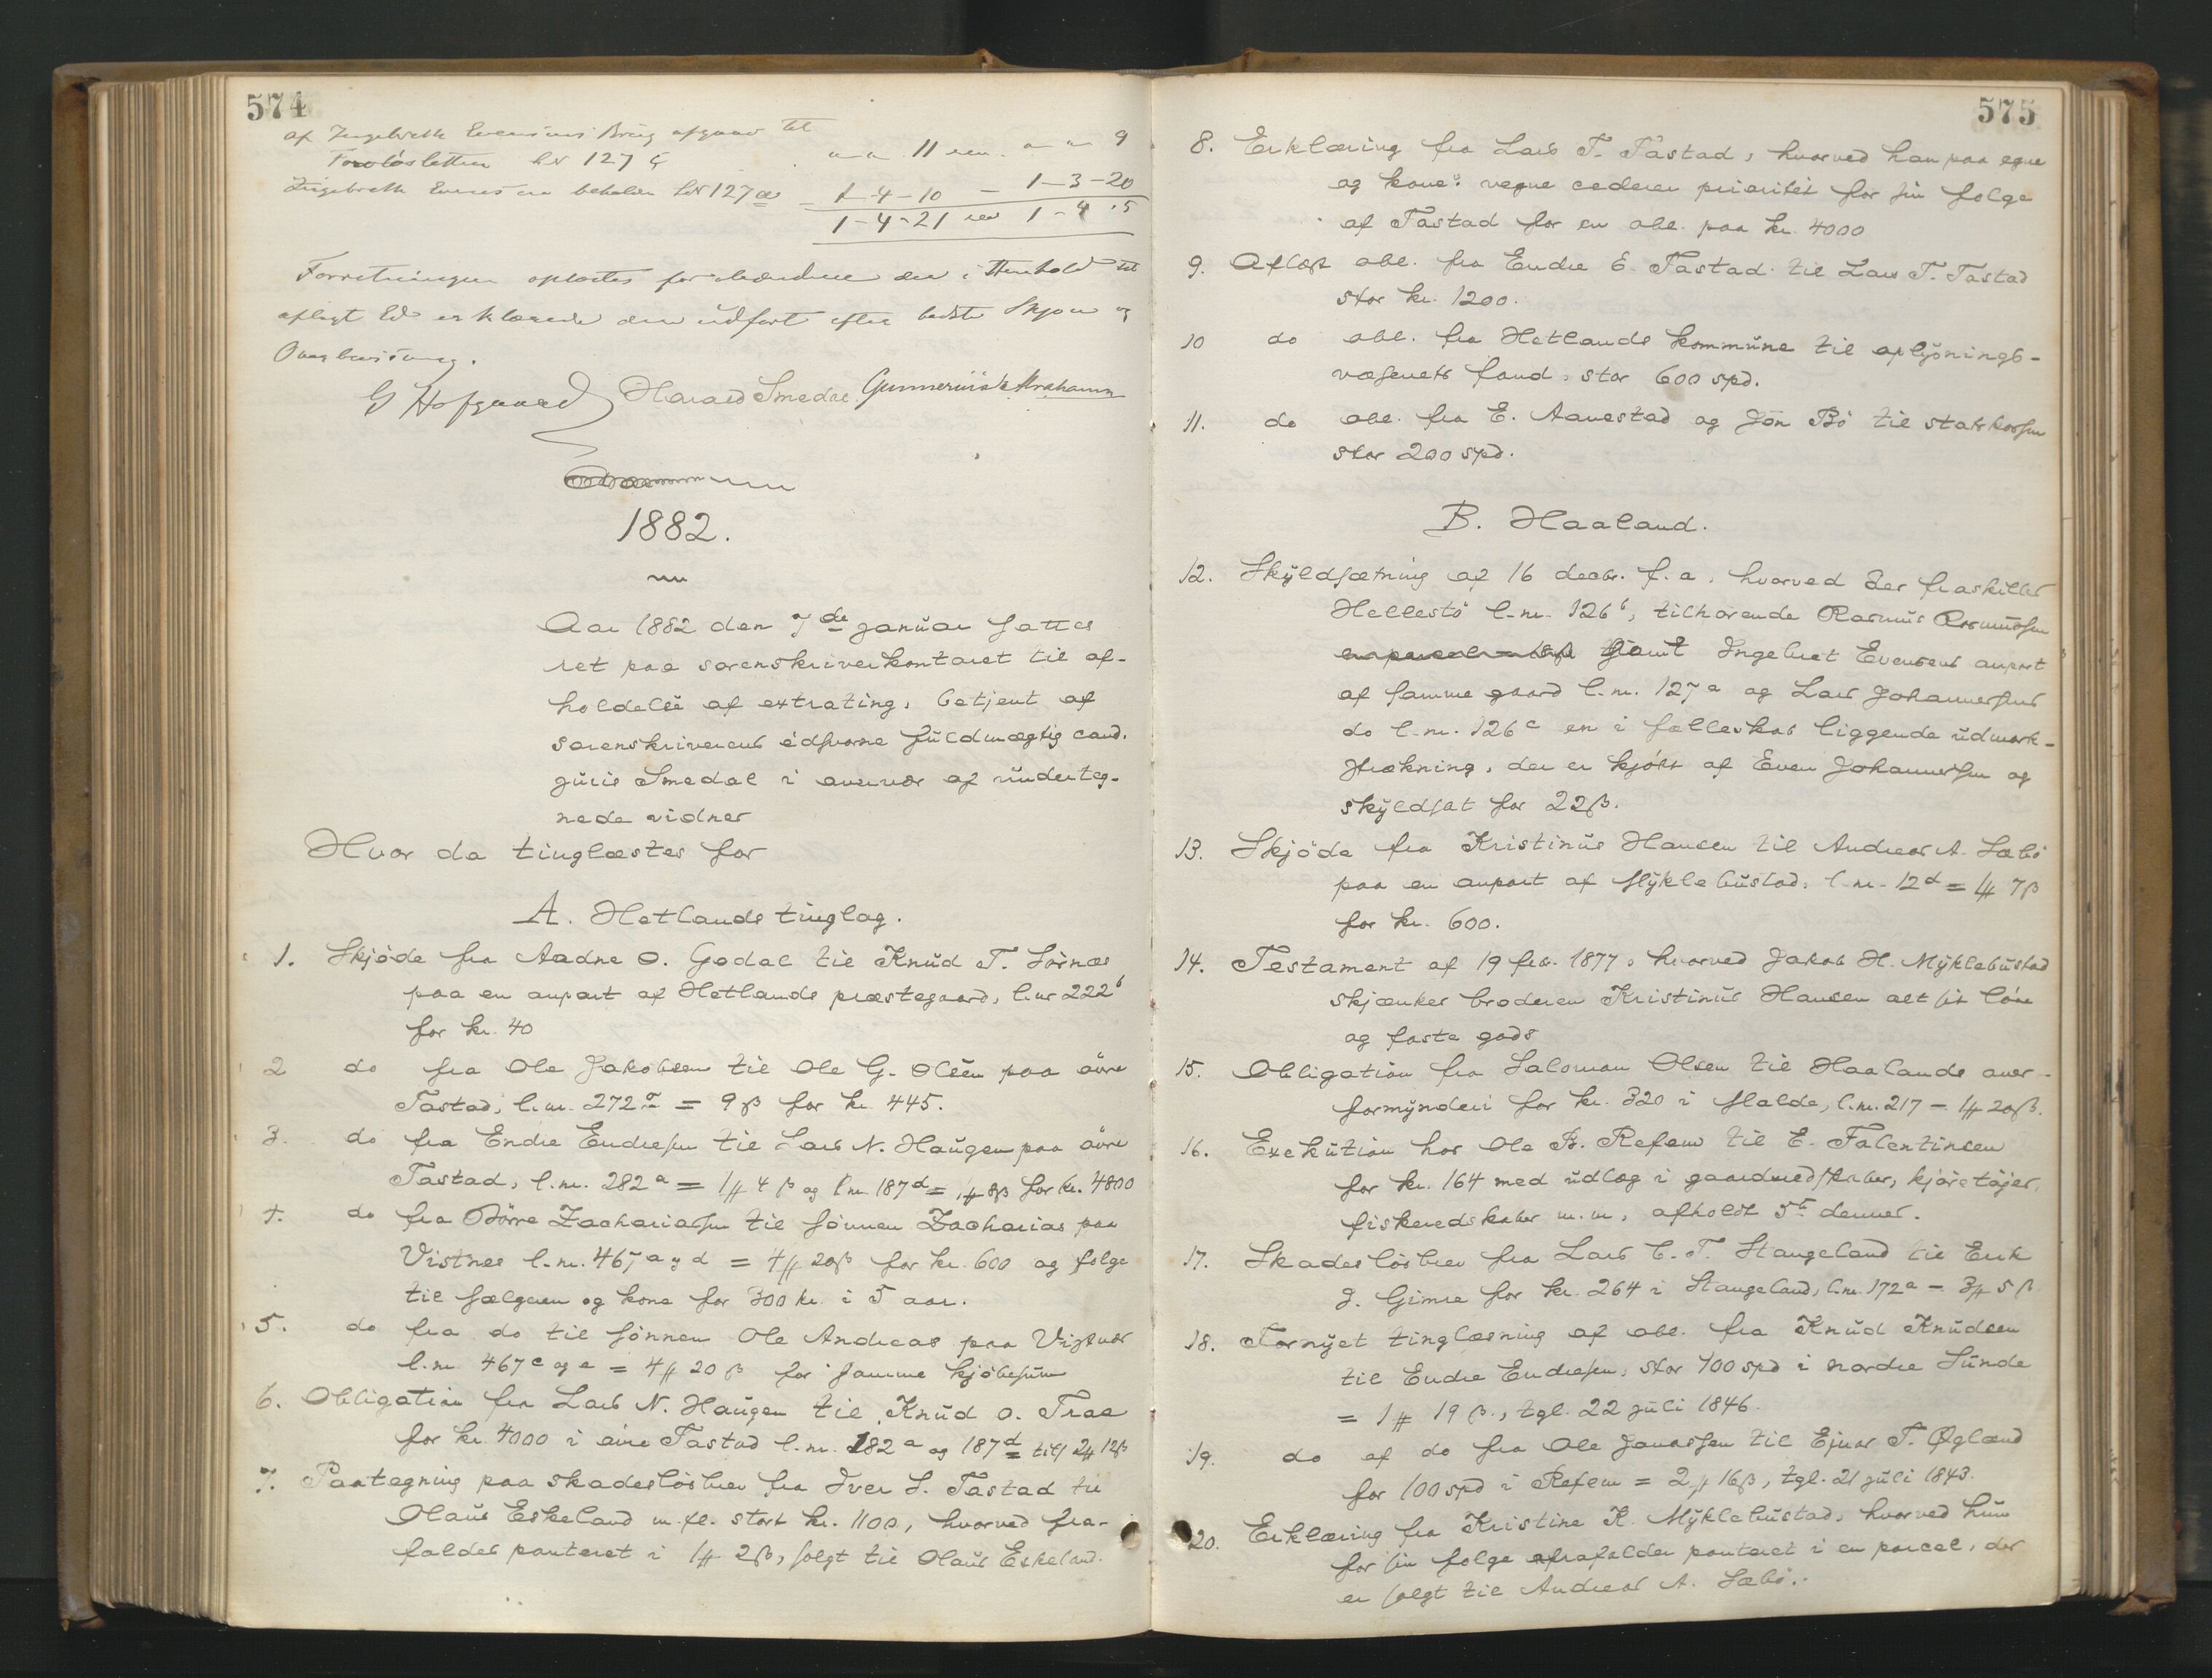 574
af Ingebreth Evensens Brug afgaar til
Forslósletten LN 127 ç " " 11 rev. " " 9
Ingebreth Evens en beholder LN 127 a = 1-4-10 — 1-3-20
1-4-21 rev 1-4.5
Forretningen oplæstes for Mændene der i Henhold til
aflagt Ed erklærede den udført efter bedste Skjøn og
Overbevisning.
G Hofgaard Harald Smedal. Gunnerius Abrahamsen
1882.
Aar 1882 den 7de januar sattes
ret paa sorenskriverkontoret til af-
holdelse af extrating, betjent af
sorenskriverens edsvorne fuldmægtig cand.
juris Smedal i overvær af underteg-
nede vidner
Hvor da tinglæstes for
A. Hetlands tinglag.
1. Skjøde fra Aadne O. Godal til Knud T. Sørnæs
paa en anpart af Hetlands præstegaard, l.nr 222b
for kr. 40
2 do fra Ole Jakobsen til Ole G. Olsen paa øvre
Tastad, l.nr. 272a = 9 β for kr. 445.
3. do fra Endre Endresen til Lars N. Haugen paa øvre
Tastad, l.nr. 282a = 1 # 4 β og l.nr 187d = 1 # 8β for kr. 4800
4. do fra Børre Zachariassen til sønnen Zacharias paa
Vistnes l.nr. 467a og d = 4 # 20β for kr. 600 og følge
til sælgeren og kone for 300 kr. i 5 aar.
5. do fra do til sønnen Ole Andreas paa Vistnæs
l.nr. 467c og e = 4 # 20 β for samme kjøbesum
6. Obligation fra Lars N. Haugen til Knud O. Traa
for kr. 4000 i øvre Tastad l.nr. 282a og 187d = tils 2# 12β
7. Paategning paa skadesløsbrev fra Iver S. Tastad til
Olaus Eskeland m.fl. stort kr. 1100, hvorved fra-
faldes panteret i 1# 2β, solgt til Olaus Eskeland.
575
8. Erklæring fra Lars T. Tastad, hvorved han paa egne
og kones vegne cederer prioritet for sin følge
af Tastad for en obl. paa kr. 4000
9. Aflæst obl. fra Endre E. Tastad til Lars T. Tastad
stor kr. 1200.
10 do obl. fra Hetlands kommune til oplysnings-
væsenets fond, stor 600 spd.
11. do obl. fra E. Aanestad og Jon Bø til statskassen
stor 200 spd.
B. Haaland.
12. Skyldsætning af 16 decbr. f.a. hvorved der fraskilles
Hellestø l.nr. 126b, tilhørende Rasmus Rasmussen
samt Ingebret Evensens anpart
af samme gaard l.nr. 127a og Lars Johannessens
do l.nr. 126c en i fælleskab liggende udmark-
strækning, der er kjøbt af Even Johannessen og
skyldsat for 22β.
13. Skjøde fra Kristinus Hansen til Andreas A. Sæbø
paa en anpart af Myklebustad, l.nr. 12d = 1# 7β
for kr. 600.
14. Testament af 19 feb. 1877, hvorved Jakob H. Myklebustad
skjænker broderen Kristinus Hansen alt sit løse
og faste gods
15. Obligation fra Saloman Olsen til Haalands over-
formynderi for kr. 320 i Malde, l.nr. 217 = 1# 20β.
16. Exekution hos Ole B. Refsem til E. Falentinsen
for kr. 164 med udlæg i gaardsredskaber, kjøretøjer,
fiskeredskaber m.m, afholdt 5te dennes.
17. Skadesløsbrev fra Lars C. T. Stangeland til Erik
J. Gimre for kr. 264 i Stangeland, l.nr. 172a = 3# 5 β
18. Fornyet tinglæsning af obl. fra Knud Knudsen
til Endre Endresen, stor 100 spd i nordre Sunde
= 1 # 19 β., tgl. 22 juli 1846.
19. do af do fra Ole Jonassen til Ejnar T. Øglænd
for 100 spd i Refsem = 2 # 16β, tgl. 21 juli 1843.
20. Erklæring fra Kristine K. Myklebustad, hvorved hun
for sin følge frafalder panteret i en parcel, der
er solgt til Andreas A. Sæbø.